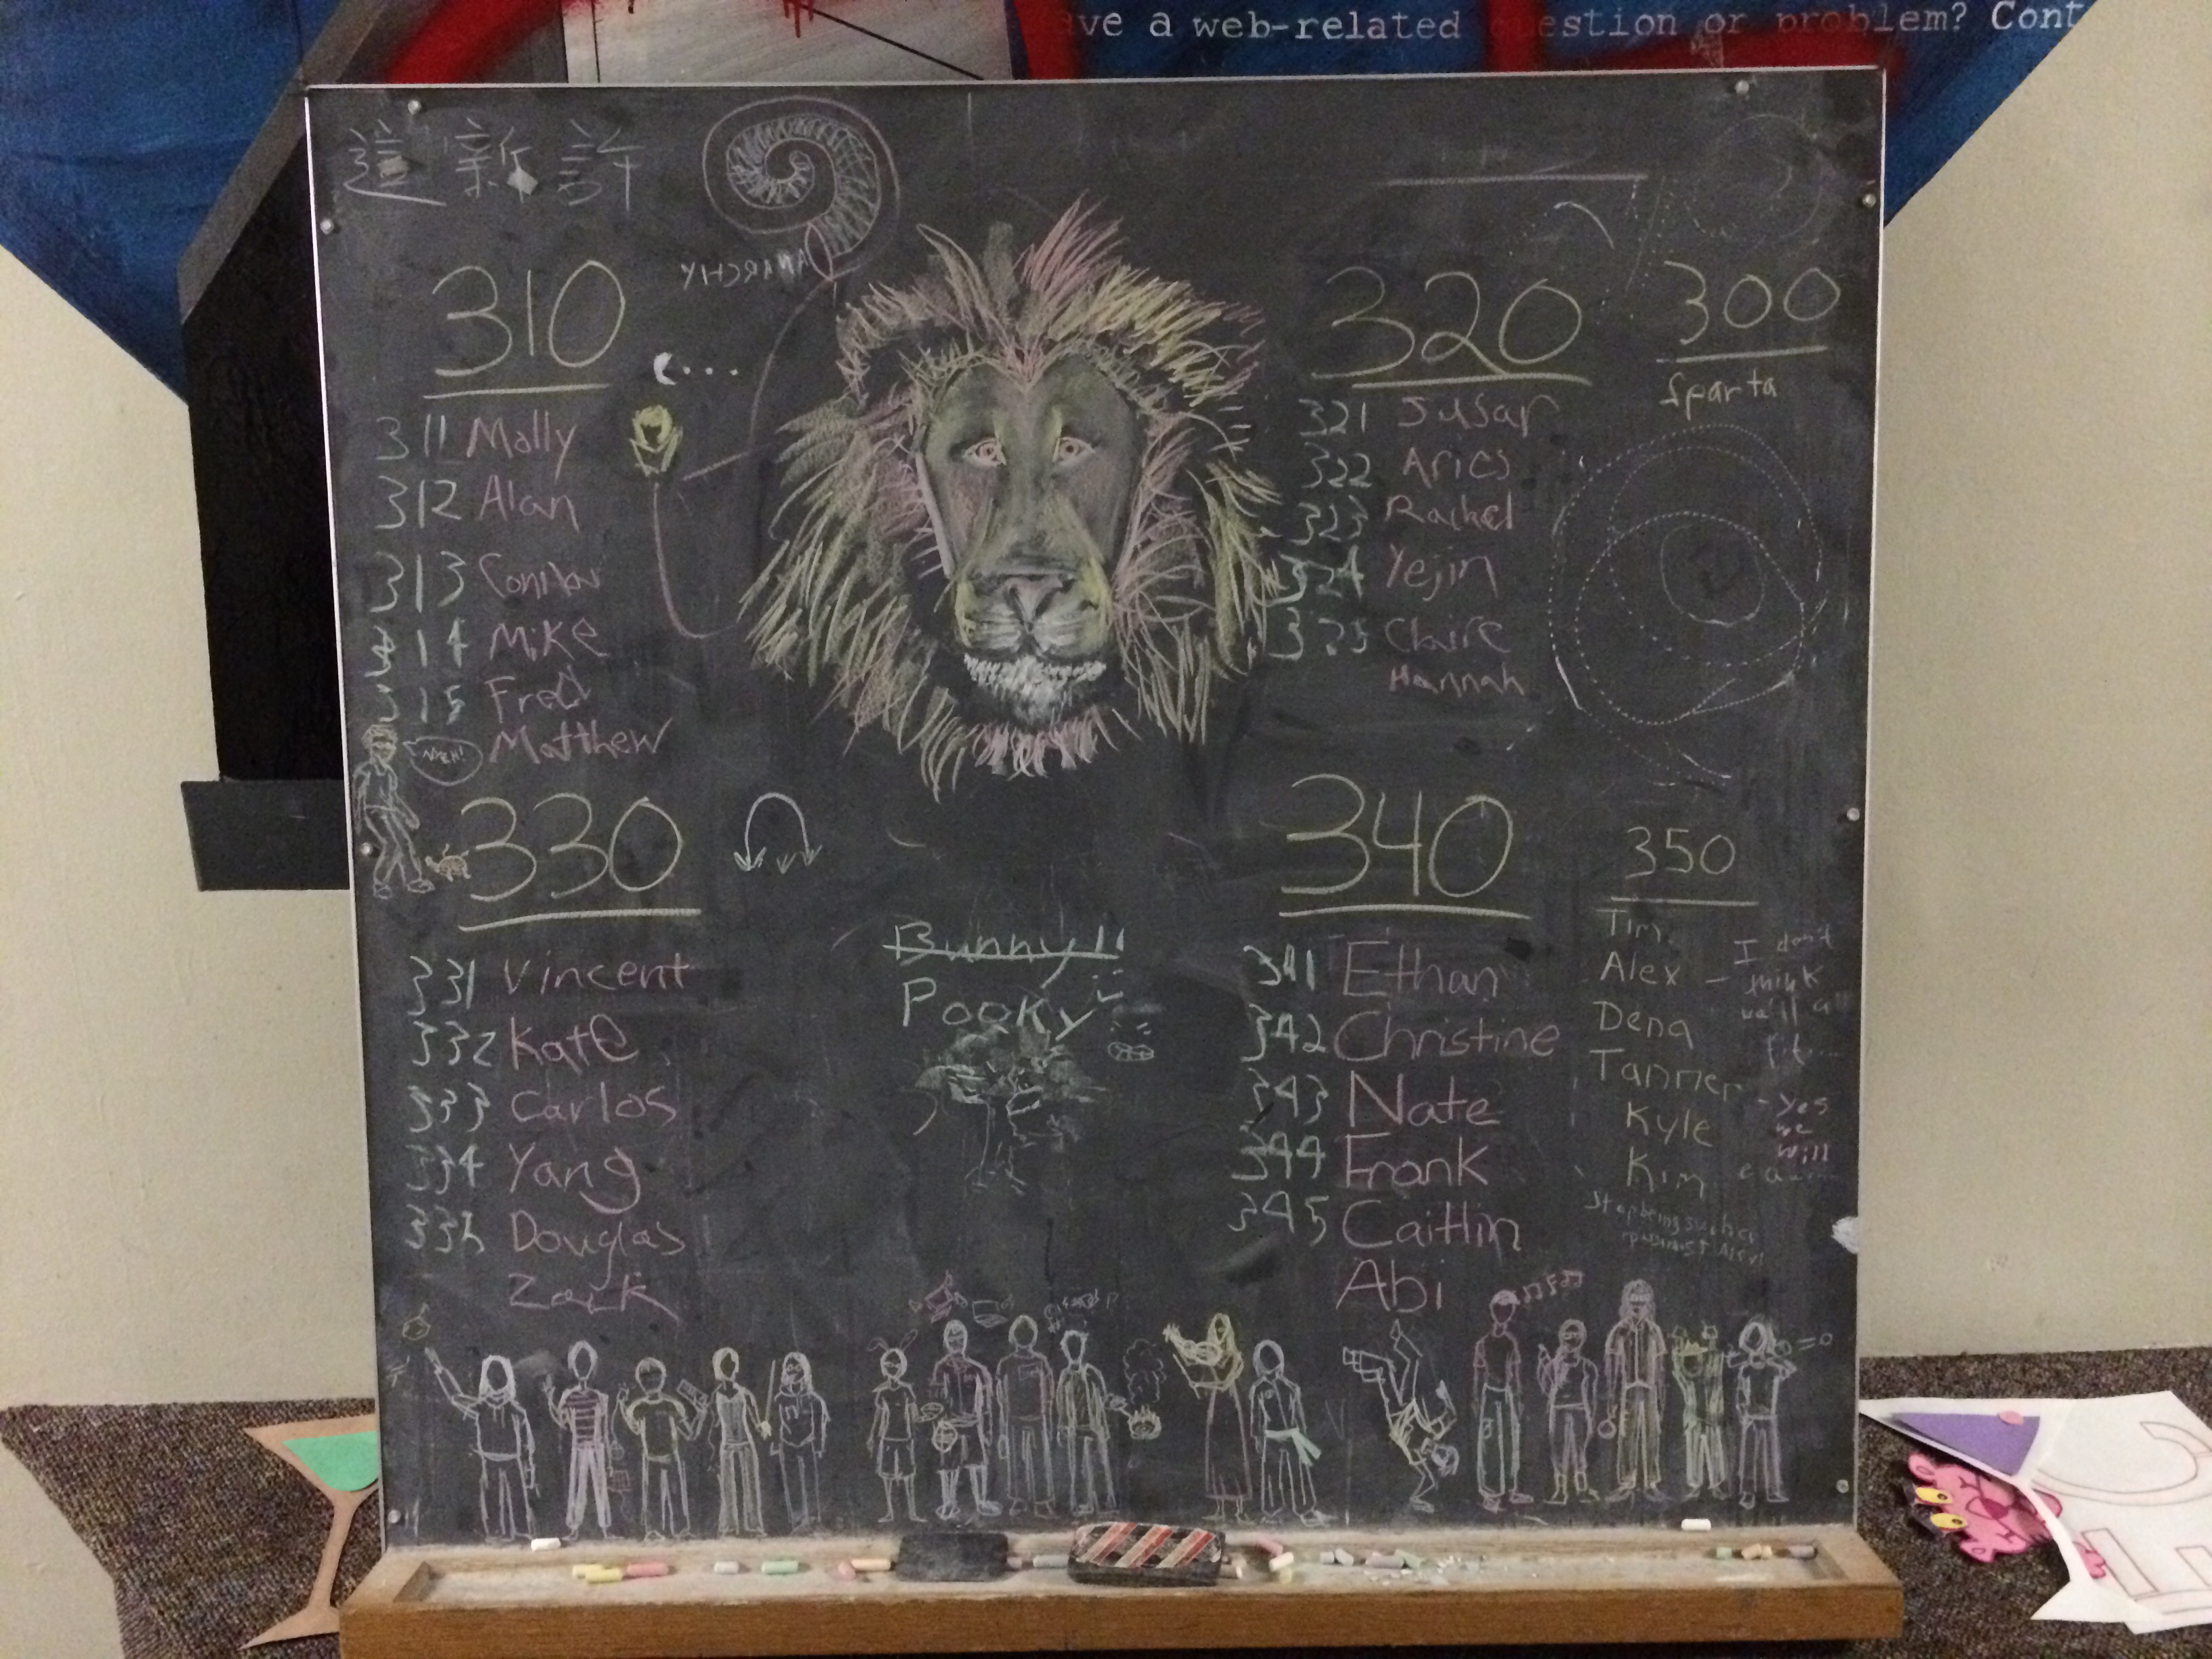 ve a web-related question or problem? Cont
進 新 許
ANARCHY
310
311 Molly
312 Alan
313 Connor
314 Mike
315 Fred
Matthew
NYEH!
320
321 Jusar
322 Aries
323 Rachel
324 Yejin
325 Claire
Hannah
300
Sparta
330
331 Vincent
332 Kate
333 Carlos
334 Yang
335 Douglas
Zack
Bunny!!
Pooky
340
341 Ethan
342 Christine
343 Nate
344 Frank
345 Caitlin
Abi
350
Tim
Alex
Dena
Tanner
Kyle
Kim
- I don't
think
we'll all
fit...
- Yes
we
will
Stop being such a
pessimist Alex!
=0